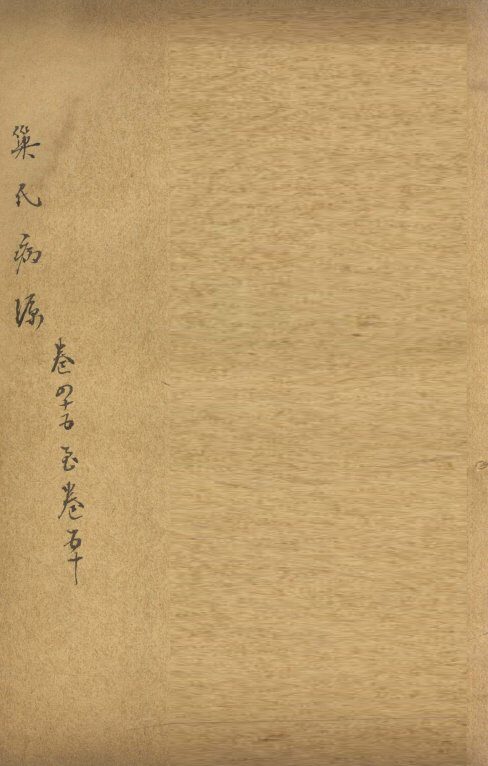 巢氏病源
卷四十五至卷五十